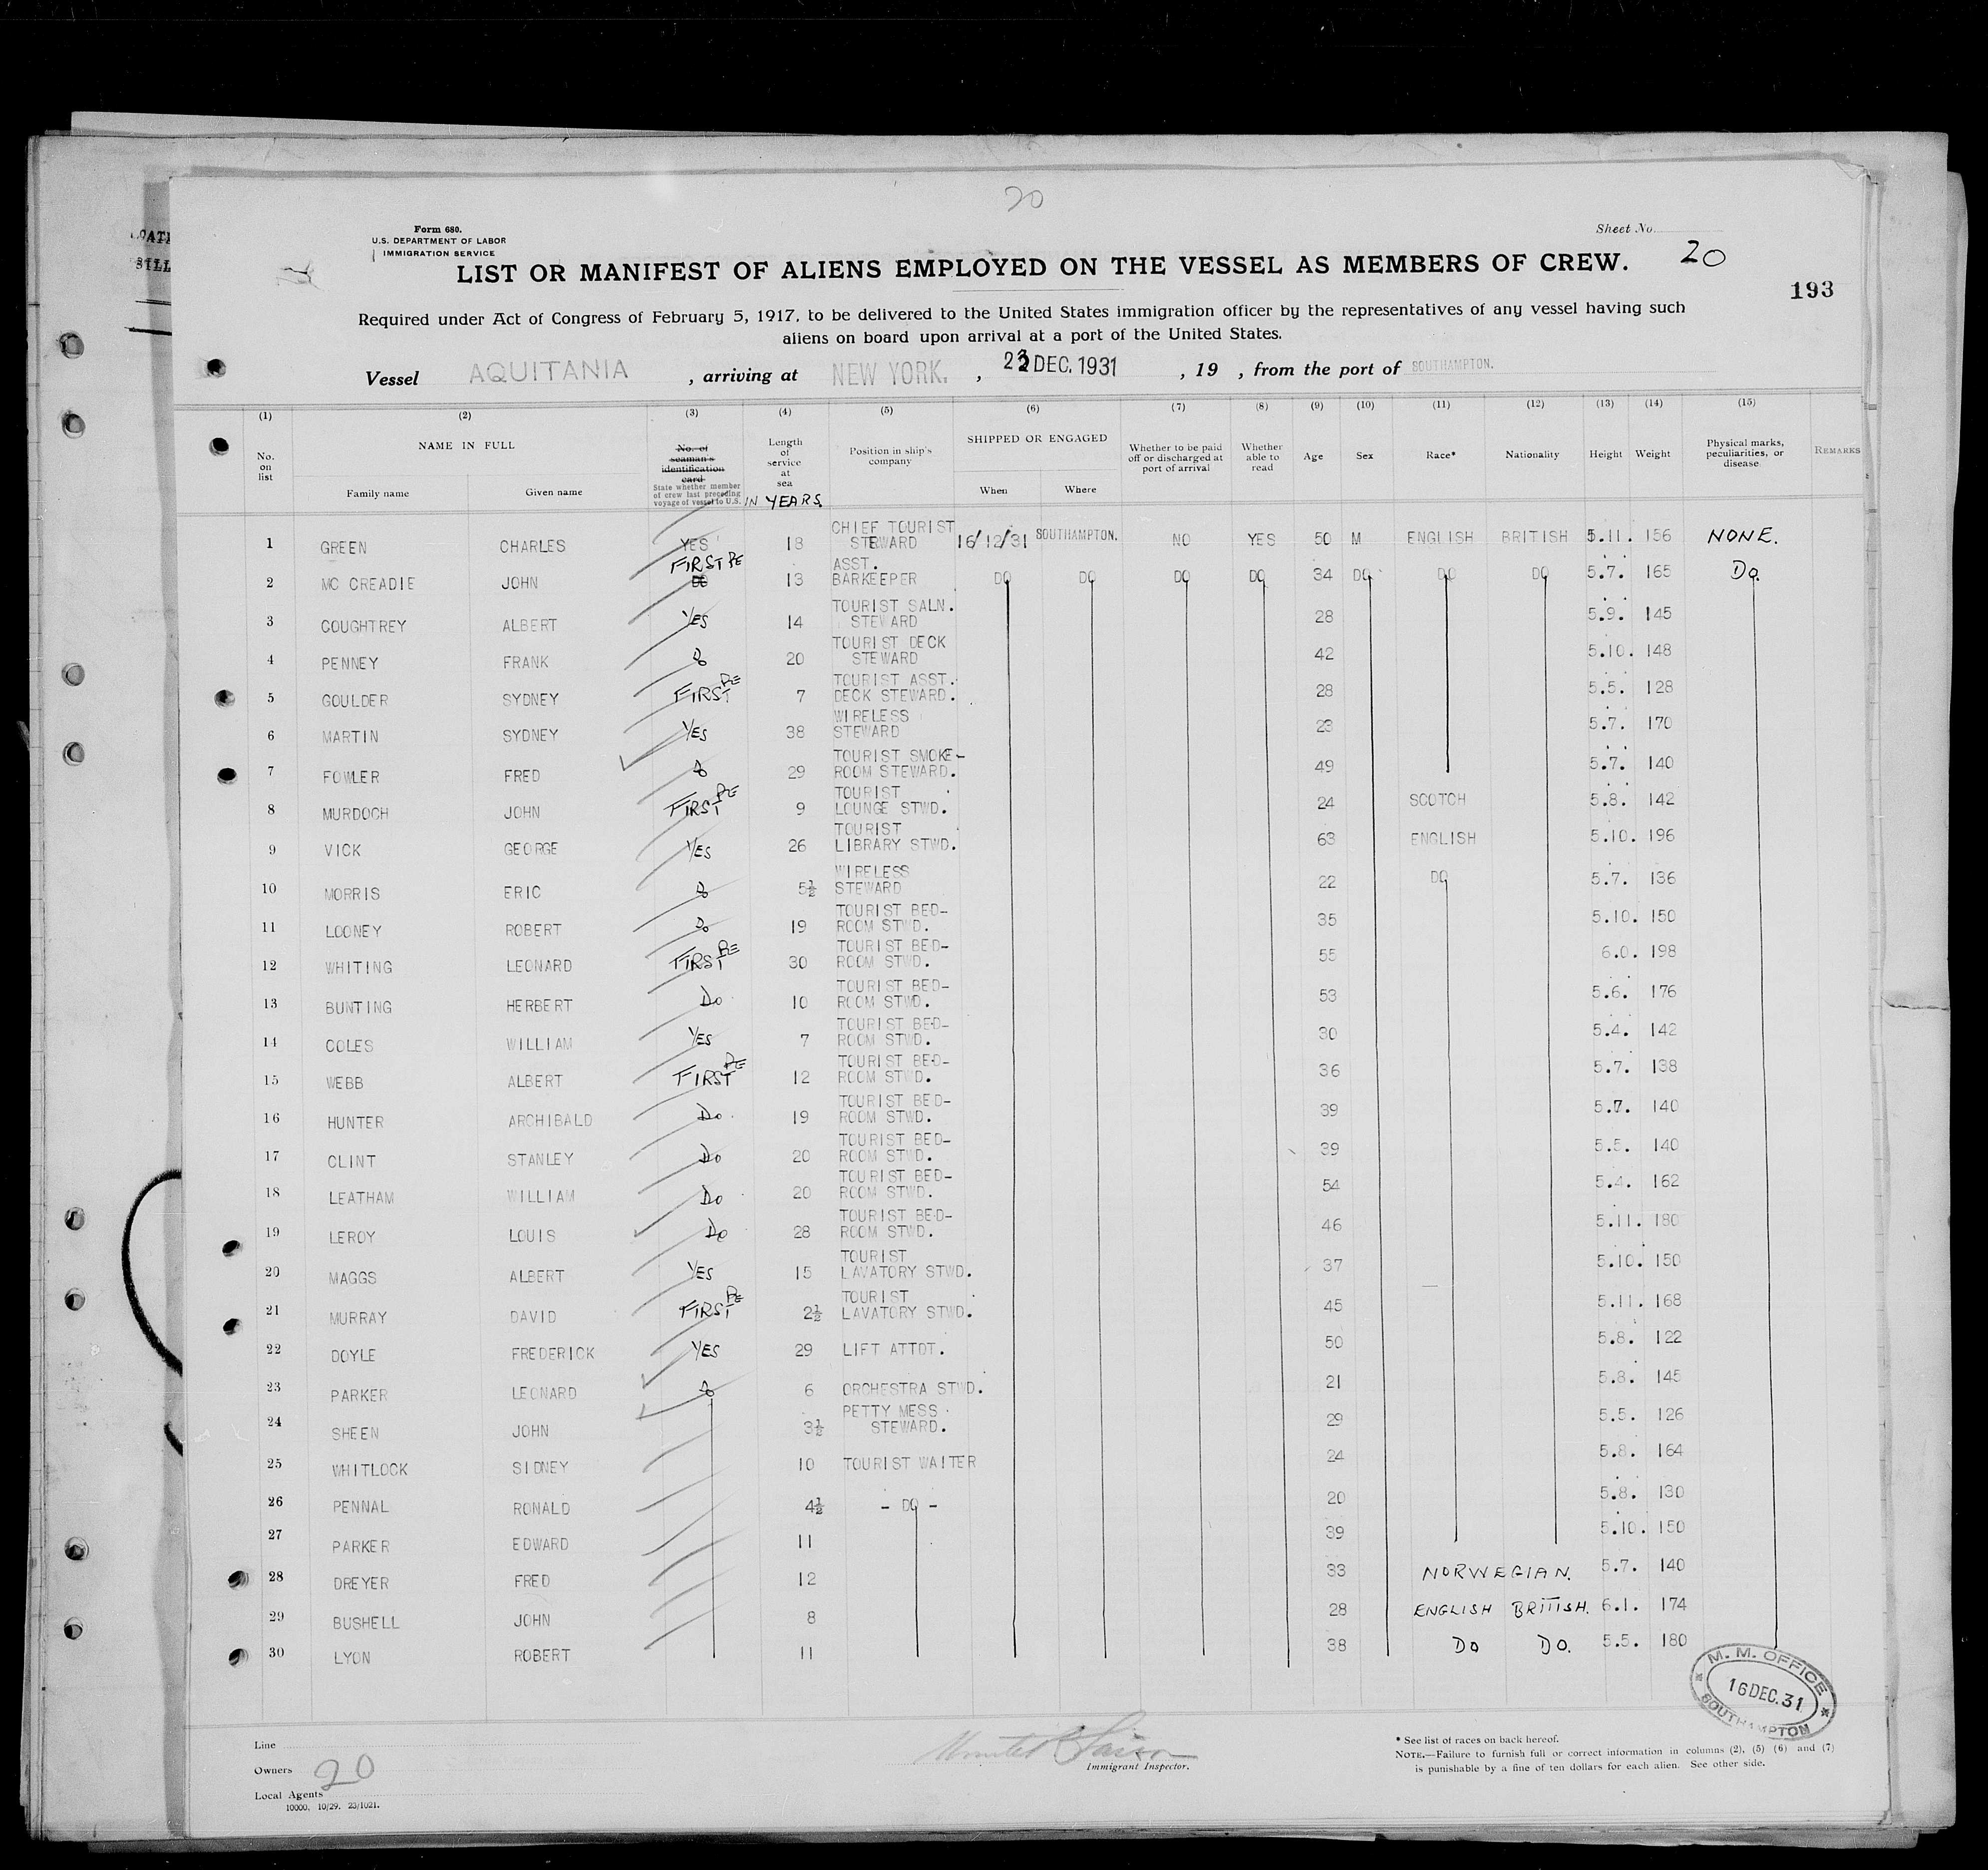 20
Form 680.
U.S. DEPARTMENT OF LABOR
IMMIGRATION SERVICE
Sheet No. 20
LIST OR MANIFEST OF ALIENS EMPLOYED ON THE VESSEL AS MEMBERS OF CREW.
193
Required under Act of Congress of February 5, 1917, to be delivered to the United States immigration officer by the representatives of any vessel having such
aliens on board upon arrival at a port of the United States.
Vessel AQUITANIA , arriving at NEW YORK. , DEC. 1931 , 19 , from the port of SOUTHAMPTON.
(1) (2) (3) (4) (5) (6) (7) (8) (9) (10) (11) (12) (13) (14) (15)
No. on list NAME IN FULL Family name Given name No. of seaman's identification card State whether member of crew last preceding voyage of vessel to U.S. Length of service at sea IN YEARS. Position in ship's company SHIPPED OR ENGAGED When Where Whether to be paid off or discharged at port of arrival Whether able to read Age Sex Race* Nationality Height Weight Physical marks, peculiarities, or disease REMARKS
1 GREEN CHARLES YES 18 CHIEF TOURIST STEWARD 16/12/31 SOUTHAMPTON. NO YES 50 M ENGLISH BRITISH 5.11. 156 NONE.
2 MC CREADIE JOHN FIRST RE DO 13 ASST. BARKEEPER DO DO DO DO 34 DO DO DO 5.7. 165 Do.
3 COUGHTREY ALBERT YES 14 TOURIST SALN. STEWARD 28 5.9. 145
4 PENNEY FRANK Do 20 TOURIST DECK STEWARD 42 5.10. 148
5 GOULDER SYDNEY FIRST RE 7 TOURIST ASST. DECK STEWARD. 28 5.5. 128
6 MARTIN SYDNEY YES 38 WIRELESS STEWARD 23 5.7. 170
7 FOWLER FRED Do 29 TOURIST SMOKE- ROOM STEWARD. 49 5.7. 140
8 MURDOCH JOHN FIRST RE 9 TOURIST LOUNGE STWD. 24 SCOTCH 5.8. 142
9 VICK GEORGE YES 26 TOURIST LIBRARY STWD. 63 ENGLISH 5.10. 196
10 MORRIS ERIC Do 5½ WIRELESS STEWARD 22 DO 5.7. 136
11 LOONEY ROBERT Do 19 TOURIST BED- ROOM STWD. 35 5.10. 150
12 WHITING LEONARD FIRST RE 30 TOURIST BED- ROOM STWD. 55 6.0. 198
13 BUNTING HERBERT Do 10 TOURIST BED- ROOM STWD. 53 5.6. 176
14 COLES WILLIAM YES 7 TOURIST BED- ROOM STWD. 30 5.4. 142
15 WEBB ALBERT FIRST RE 12 TOURIST BED- ROOM STWD. 36 5.7. 138
16 HUNTER ARCHIBALD Do. 19 TOURIST BED- ROOM STWD. 39 5.7. 140
17 CLINT STANLEY Do 20 TOURIST BED- ROOM STWD. 39 5.5. 140
18 LEATHAM WILLIAM Do 20 TOURIST BED- ROOM STWD. 54 5.4. 162
19 LEROY LOUIS Do 28 TOURIST BED- ROOM STWD. 46 5.11. 180
20 MAGGS ALBERT YES 15 TOURIST LAVATORY STWD. 37 5.10. 150
21 MURRAY DAVID FIRST RE 2½ TOURIST LAVATORY STWD. 45 5.11. 168
22 DOYLE FREDERICK YES 29 LIFT ATTDT. 50 5.8. 122
23 PARKER LEONARD Do 6 ORCHESTRA STWD. 21 5.8. 145
24 SHEEN JOHN 3½ PETTY MESS STEWARD. 29 5.5. 126
25 WHITLOCK SIDNEY 10 TOURIST WAITER 24 5.8. 164
26 PENNAL RONALD 4½ - DO - 20 5.8. 130
27 PARKER EDWARD 11 39 5.10. 150
28 DREYER FRED 12 33 NORWEGIAN. 5.7. 140
29 BUSHELL JOHN 8 28 ENGLISH BRITISH. 6.1. 174
30 LYON ROBERT 11 38 DO DO. 5.5. 180
M. M. OFFICE
16 DEC. 31
SOUTHAMPTON
Line
Owners
20
Local Agents
10000, 10/29. 23/1021.
Immigrant Inspector.
* See list of races on back hereof.
NOTE.—Failure to furnish full or correct information in columns (2), (5) (6) and (7)
is punishable by a fine of ten dollars for each alien. See other side.